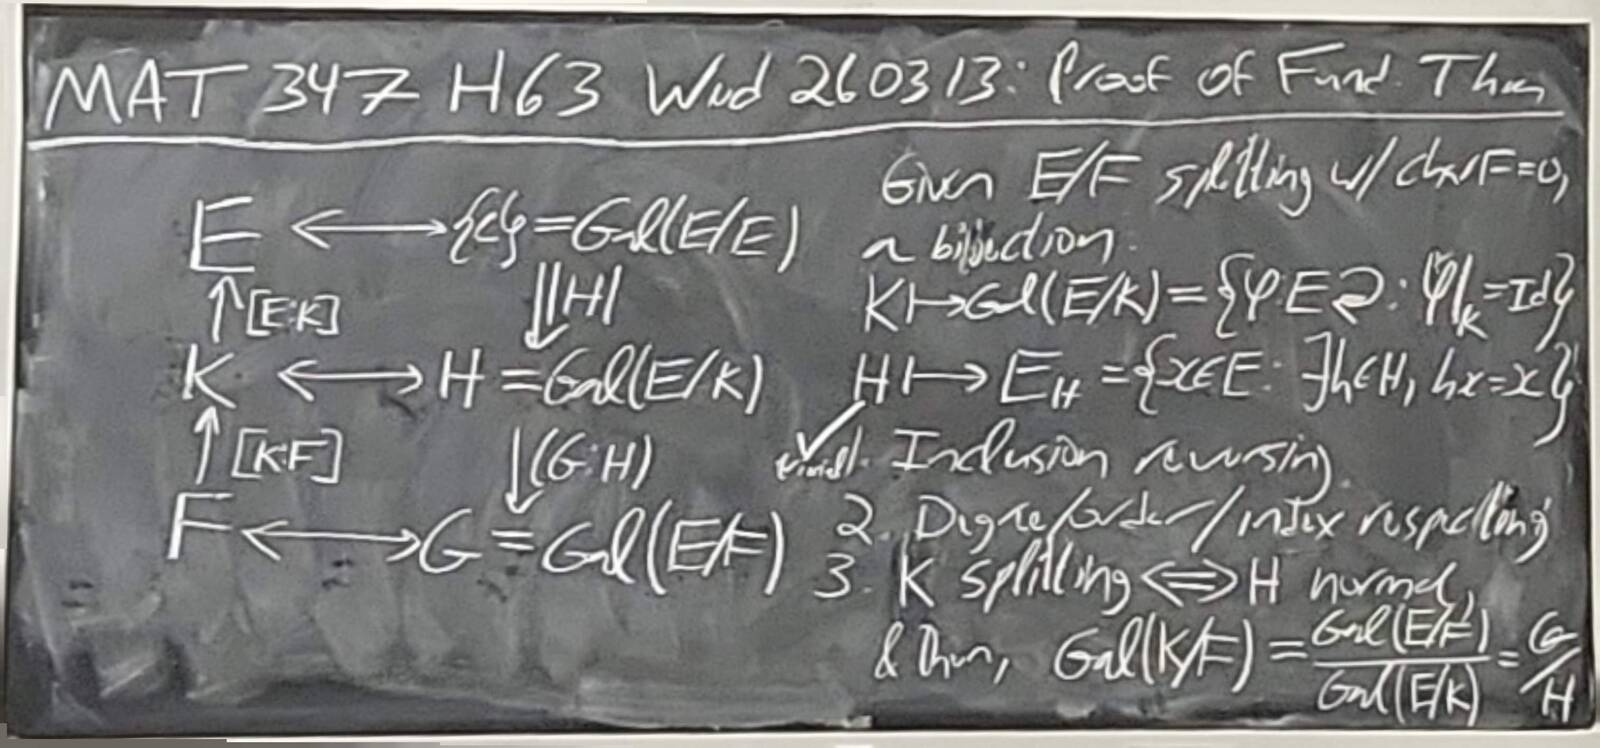 MAT 347 H63 Wed 260313: Proof of Fund. Thm
E ⟷ {e} = Gal(E/E)
↑ [E:K] ⇓ |H|
K ⟷ H = Gal(E/K)
↑ [K:F] ↓ (G:H)
F ⟷ G = Gal(E/F)
Given E/F splitting w/ char F=0,
a bijection:
K ↦ Gal(E/K) = {φ:E⊋: φ|_K = Id}
H ↦ E_H = {x∈E: ∃h∈H, hx=x}
✓ trivial 1. Inclusion reversing.
2. Degree/order/index respecting
3. K splitting ⟺ H normal,
& then, Gal(K/F) = Gal(E/F) / Gal(E/K) = G/H